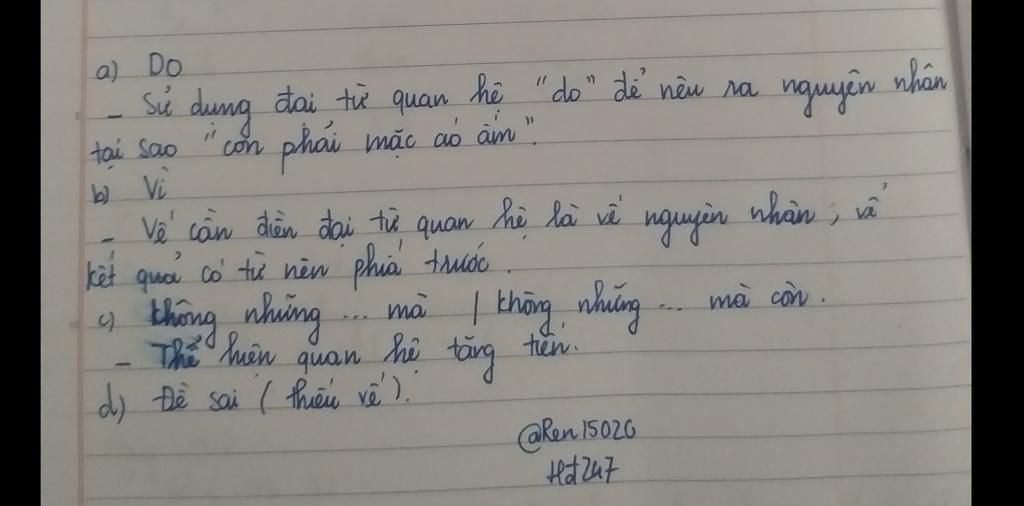 a) Do
- Sử dụng đại từ quan hệ "do" để nêu ra nguyên nhân
tại sao "con phải mặc áo ấm".
b) Vì
- Vế cần điền đại từ quan hệ là vế nguyên nhân, vế
kết quả có từ nên phía trước.
c) Không những ... mà / không những ... mà còn.
- Thể hiện quan hệ tăng tiến.
d) Đề sai (thiếu vế).
@Ren15020
Hd247